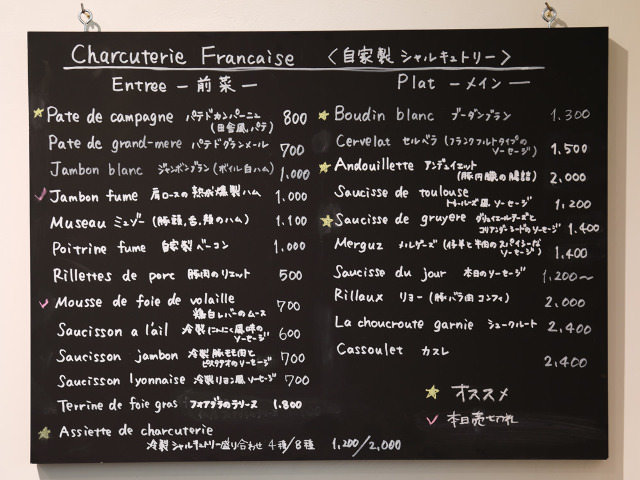 Charcuterie Francaise 〈自家製 シャルキュトリー〉
Entree ー 前菜 ー
Pate de campagne パテドカンパーニュ (田舎風パテ) 800
Pate de grand-mere パテドグランメール 700
Jambon blanc ジャンボンブラン (ボイル白ハム) 1,000
Jambon fume 肩ロースの熟成燻製ハム 1,000
Museau ミュゾー (豚頭,舌,頬のハム) 1.100
Poitrine fume 自家製ベーコン 1.000
Rillettes de porc 豚肉のリエット 500
Mousse de foie de volaille 鶏白レバーのムース 700
Saucisson a l'ail 冷製にんにく風味のソーセージ 600
Saucisson jambon 冷製豚モモ肉とピスタチオのソーセージ 700
Saucisson lyonnaise 冷製リヨン風ソーセージ 700
Terrine de foie gras フォアグラのテリーヌ 1.800
Assiette de charcuterie
冷製シャルキュトリー盛り合わせ 4種/8種 1,200/2,000
Plat ーメイン ー
Boudin blanc ブーダンブラン 1.300
Cervelat セルベラ (フランクフルトタイプのソーセージ) 1,500
Andouillette アンデュイエット (豚内臓の腸詰) 2,000
Saucisse de toulouse トゥールーズ風ソーセージ 1,200
Saucisse de gruyere グリュイエールチーズとコリアンダーシードのソーセージ 1.400
Merguz メルゲーズ (仔羊と牛肉のスパイシーなソーセージ) 1.400
Saucisse du jour 本日のソーセージ 1,200〜
Rillaux リヨー (豚バラ肉コンフィ) 2.000
La choucroute garnie シュークルート 2,400
Cassoulet カスレ 2,400
オススメ
本日売切れ